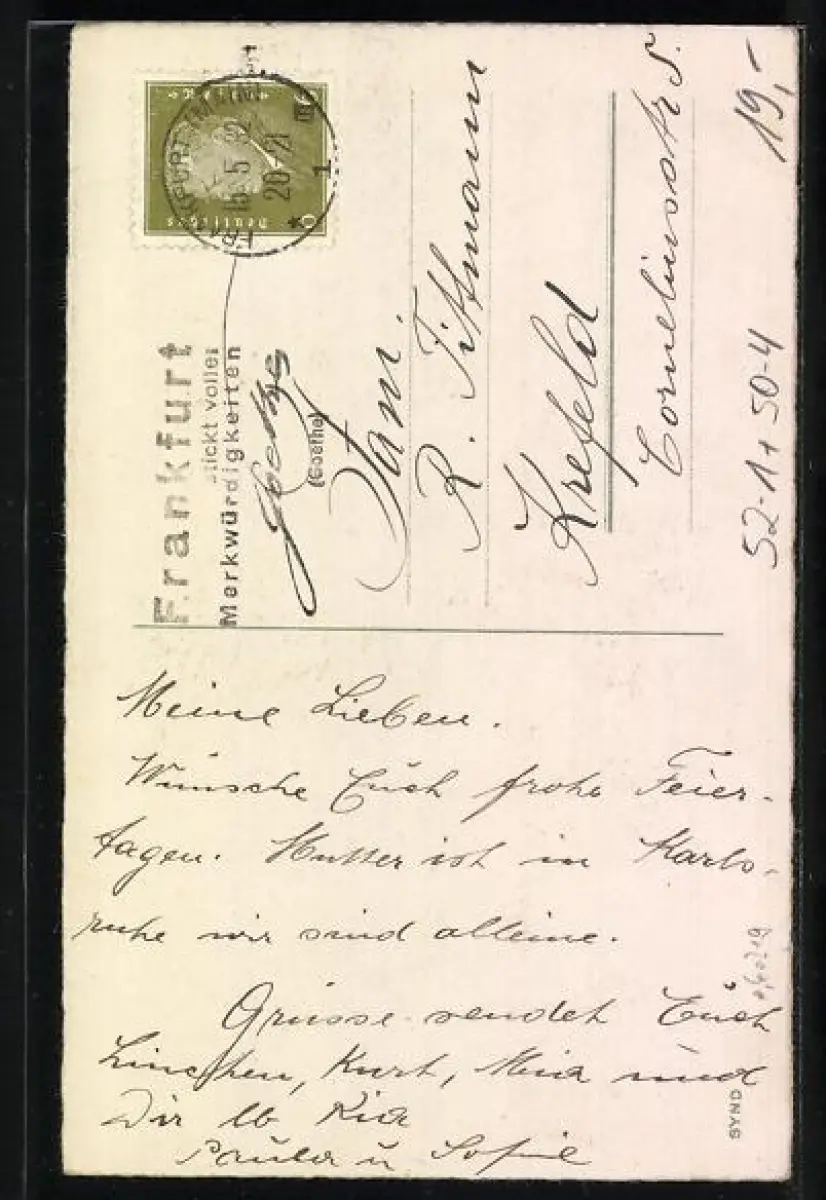 FRANKFURT (MAIN)
15.5.32
20-21
1
Deutsches Reich
6
6
Frankfurt
stickt voller
Merkwürdigkeiten
Goethe
(Goethe)
Fam.
R. Tittmann
Krefeld
Corneliusstr 5.
19,-
52-1+50-4
Meine Lieben.
Wünsche Euch frohe Feier-
tagen. Mutter ist in Karls-
ruhe wir sind alleine.
Grüsse sendet Euch
Linchen, Kurt, Mia und
Dir lb
Paula u Sofie
SYND